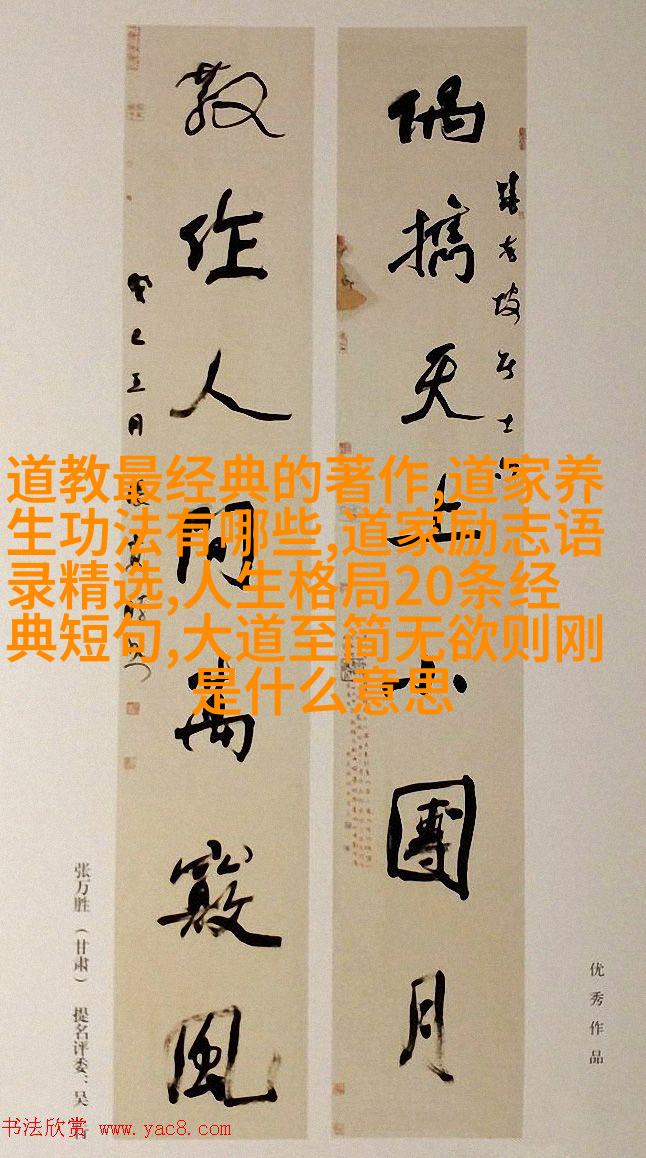 偶攜天上小團月
老坡居士
散作人間萬竅風
癸巳五月
道教最经典的著作,道家养
生功法有哪些,道家励志语
录精选,人生格局20条经
典短句,大道至简无欲则刚
是什么意思
优秀作品
张万胜(甘肃) 提名评委:吴
书法欣赏 www.yac8.com